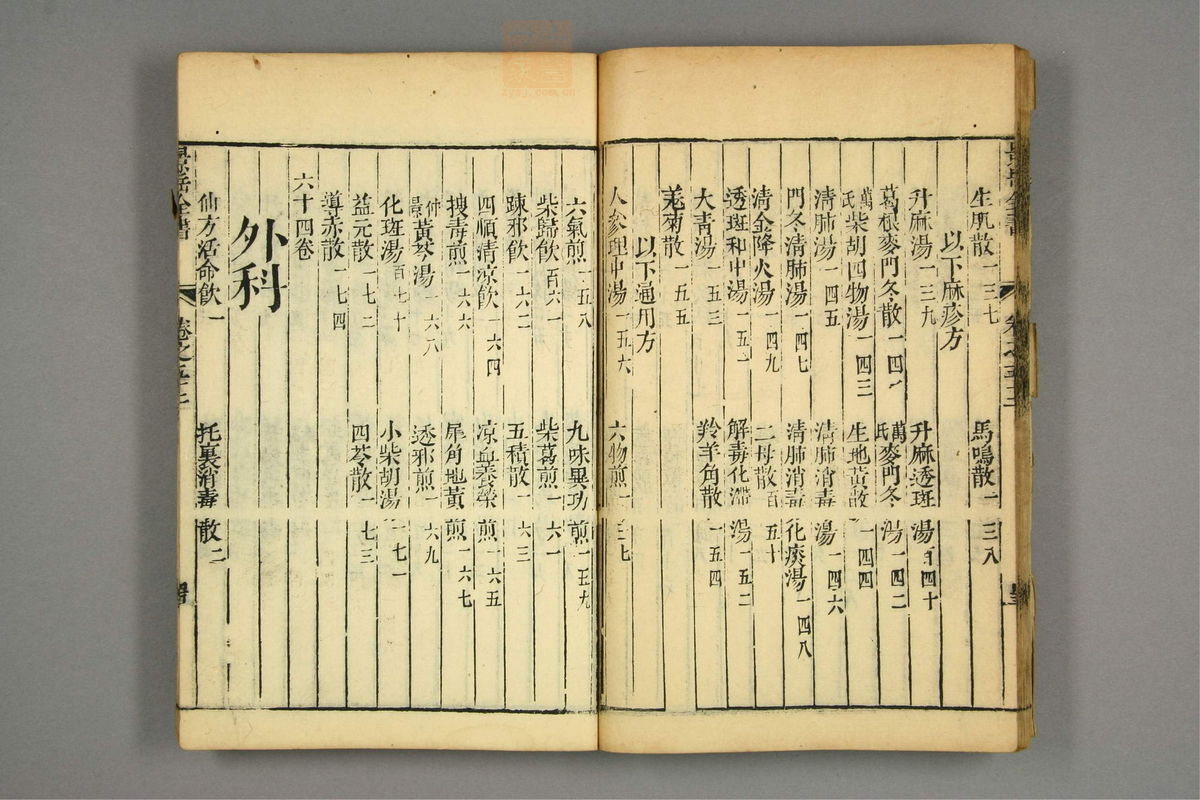 生肌散一三七　馬鳴散一三八
以下麻疹方
升麻湯一三九　升麻透斑湯百四十
葛根麥門冬散一四　萬氏麥門冬湯一四二
萬氏柴胡四物湯一四三　生地黃散一四四
清肺湯一四五　清肺消毒湯一四六
門冬清肺湯一四七　清肺消毒化痰湯一四八
清金降火湯一四九　二母散百五十
透斑和中湯一五一　解毒化滯湯一五二
大青湯一五三　羚羊角散一五四
羗菊散一五五
以下通用方
人參理中湯一五六　六物煎一三七
六氣煎一五八　九味異功煎一五九
柴歸飲百六　柴葛煎一六一
疎邪飲一六二　五積散一六三
四順清凉飲一六四　凉血養榮煎一六五
搜毒煎一六六　犀角地黃煎一六七
仲景黃芩湯一六八　透邪煎一六九
化斑湯百七十　小柴胡湯一七一
益元散一七二　四苓散一七三
導赤散一七四
六十四卷
外科
仙方活命飲一　托裏消毒散二
景岳全書　卷之五十二